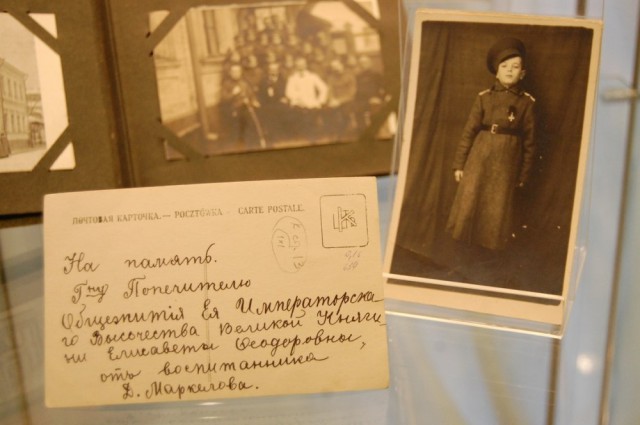 ПОЧТОВАЯ КАРТОЧКА.— POCZTÓWKA.— CARTE POSTALE.
На память.
Гну Попечителю
Общежитія Ея Императорска-
го Высочества Великой Княги-
ни Елисаветы Ѳеодоровны,
отъ воспитанника
Д. Маркелова.